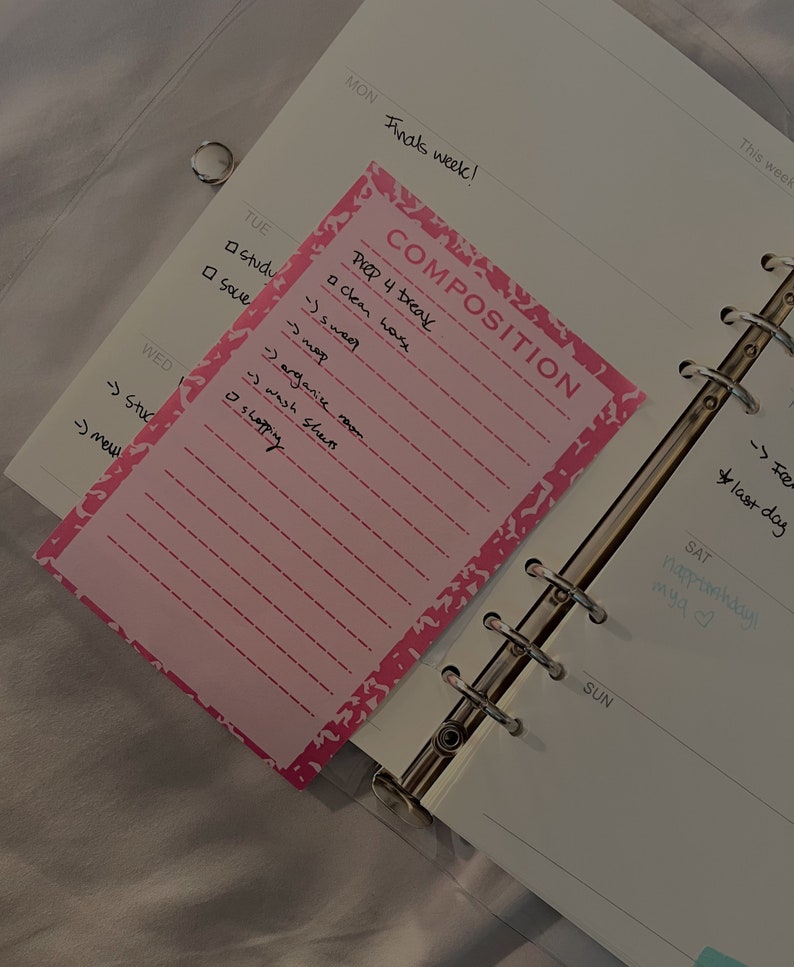 MON
This week
Finals week!
TUE
□ study
□
WED
->
->
COMPOSITION
Prep 4 break
□ clean house
-> sweep
-> mop
-> organize room
-> wash sheets
□ shopping
->
★last day
SAT
happy birthday!
mya ♡
SUN